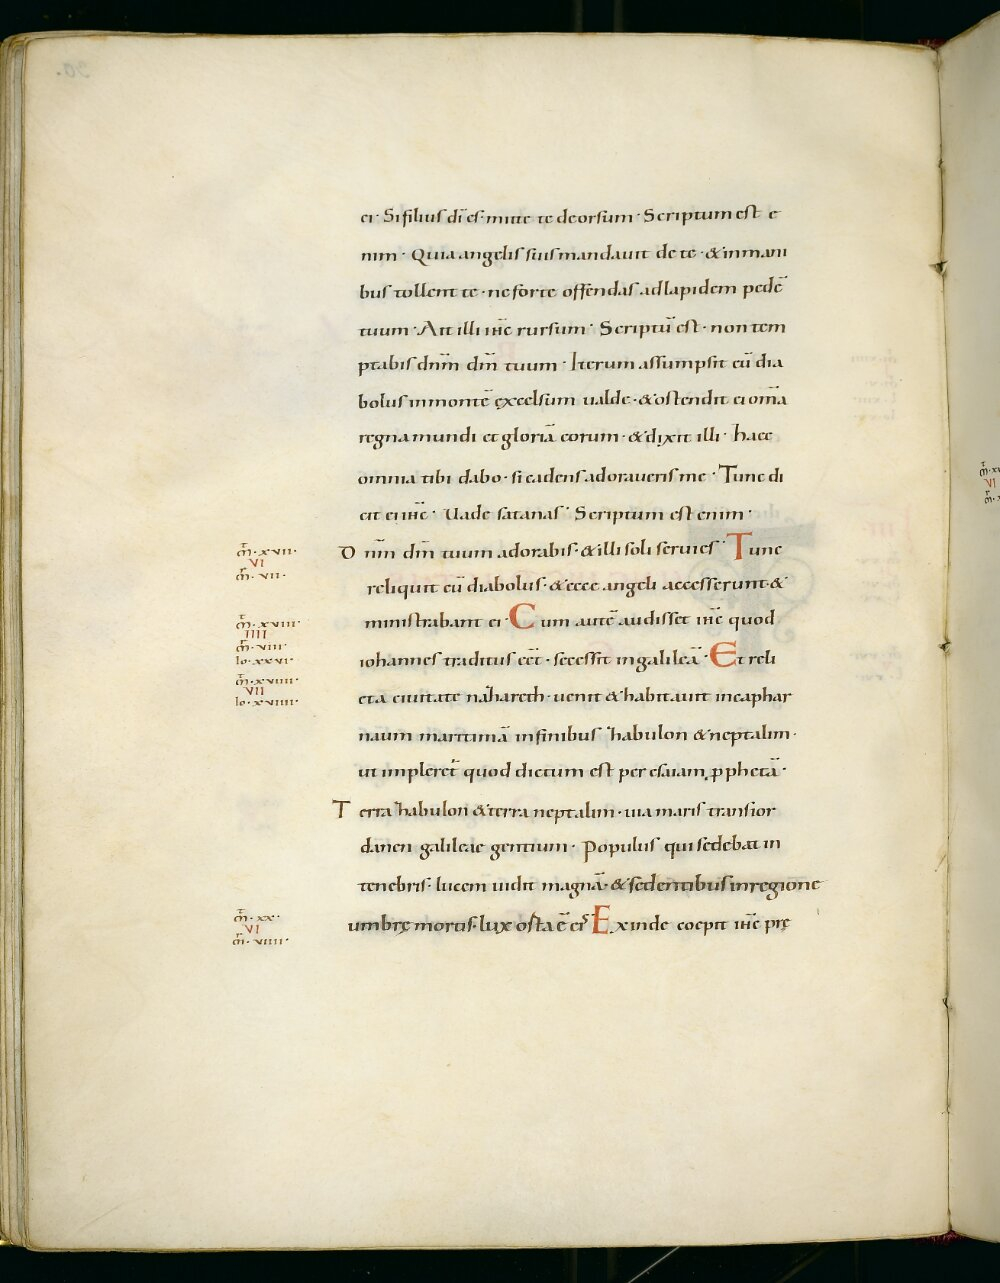 ei · Si filius dī es · mitte te deorsum · Scriptum est e
nim · Quia angelis suis mandavit de te · & in mani
bus tollent te · ne forte offendas ad lapidem pedē
tuum · Ait illi ihc̄ rursum · Scriptū est · non tem
ptabis dnm̄ dm̄ tuum · Iterum assumpsit eū dia
bolus in montē excelsum ualde · & ostendit ei om̄a
regna mundi et gloriā eorum · & dixit illi · haec
omnia tibi dabo · si cadens adoraueris me · Tunc di
cit ei ihc̄ · Uade satanas · Scriptum est enim ·
m̄ · xvii ·
VI
m̄ · vii ·
D nm̄ dm̄ tuum adorabis · & illi soli seruies · Tunc
reliquit eū diabolus · & ecce angeli accesserunt · &
m̄ · xviii ·
IIII
m̄ · viii ·
Io · xxvi ·
ministrabant ei · Cum autē audisset ihc̄ quod
iohannes traditus eēt · secessit in galileā · Et reli
m̄ · xviiii ·
VII
Io · xviiii ·
cta ciuitate nazareth · uenit & habitauit in caphar
naum maritimā in finibus zabulon & neptalim ·
ut impleret̄ quod dictum est per esaiam p̱phetā ·
T erra zabulon & terra neptalim · uia maris transior
danen galileae gentium · Populus qui sedebat in
tenebris · lucem uidit magnā · & sedentibus in regione
m̄ · xx ·
VI
m̄ · viiii ·
umbrę mortis · lux orta ē eis · Exinde coepit ihc̄ prę